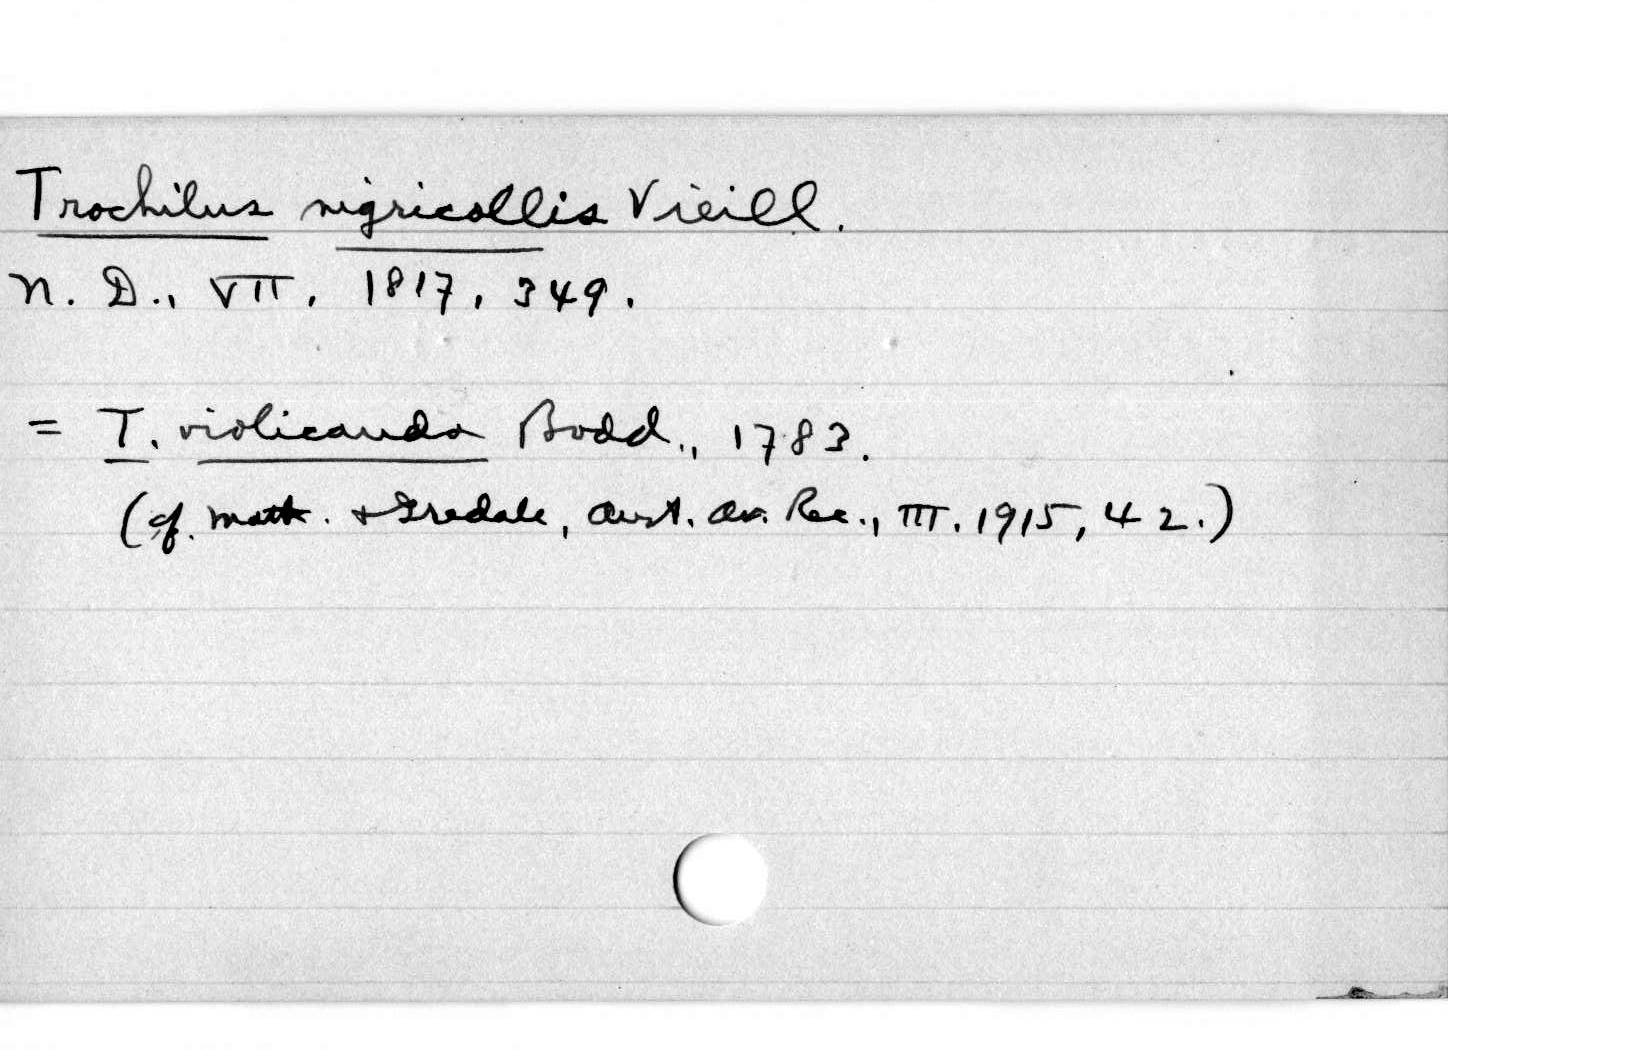 Trochilus nigricollis Vieill.
N. D., VII, 1817, 349.
= T. violicauda Bodd., 1783.
(cf. Math. & Iredale, Aust. Av. Rec., III. 1915, 42.)